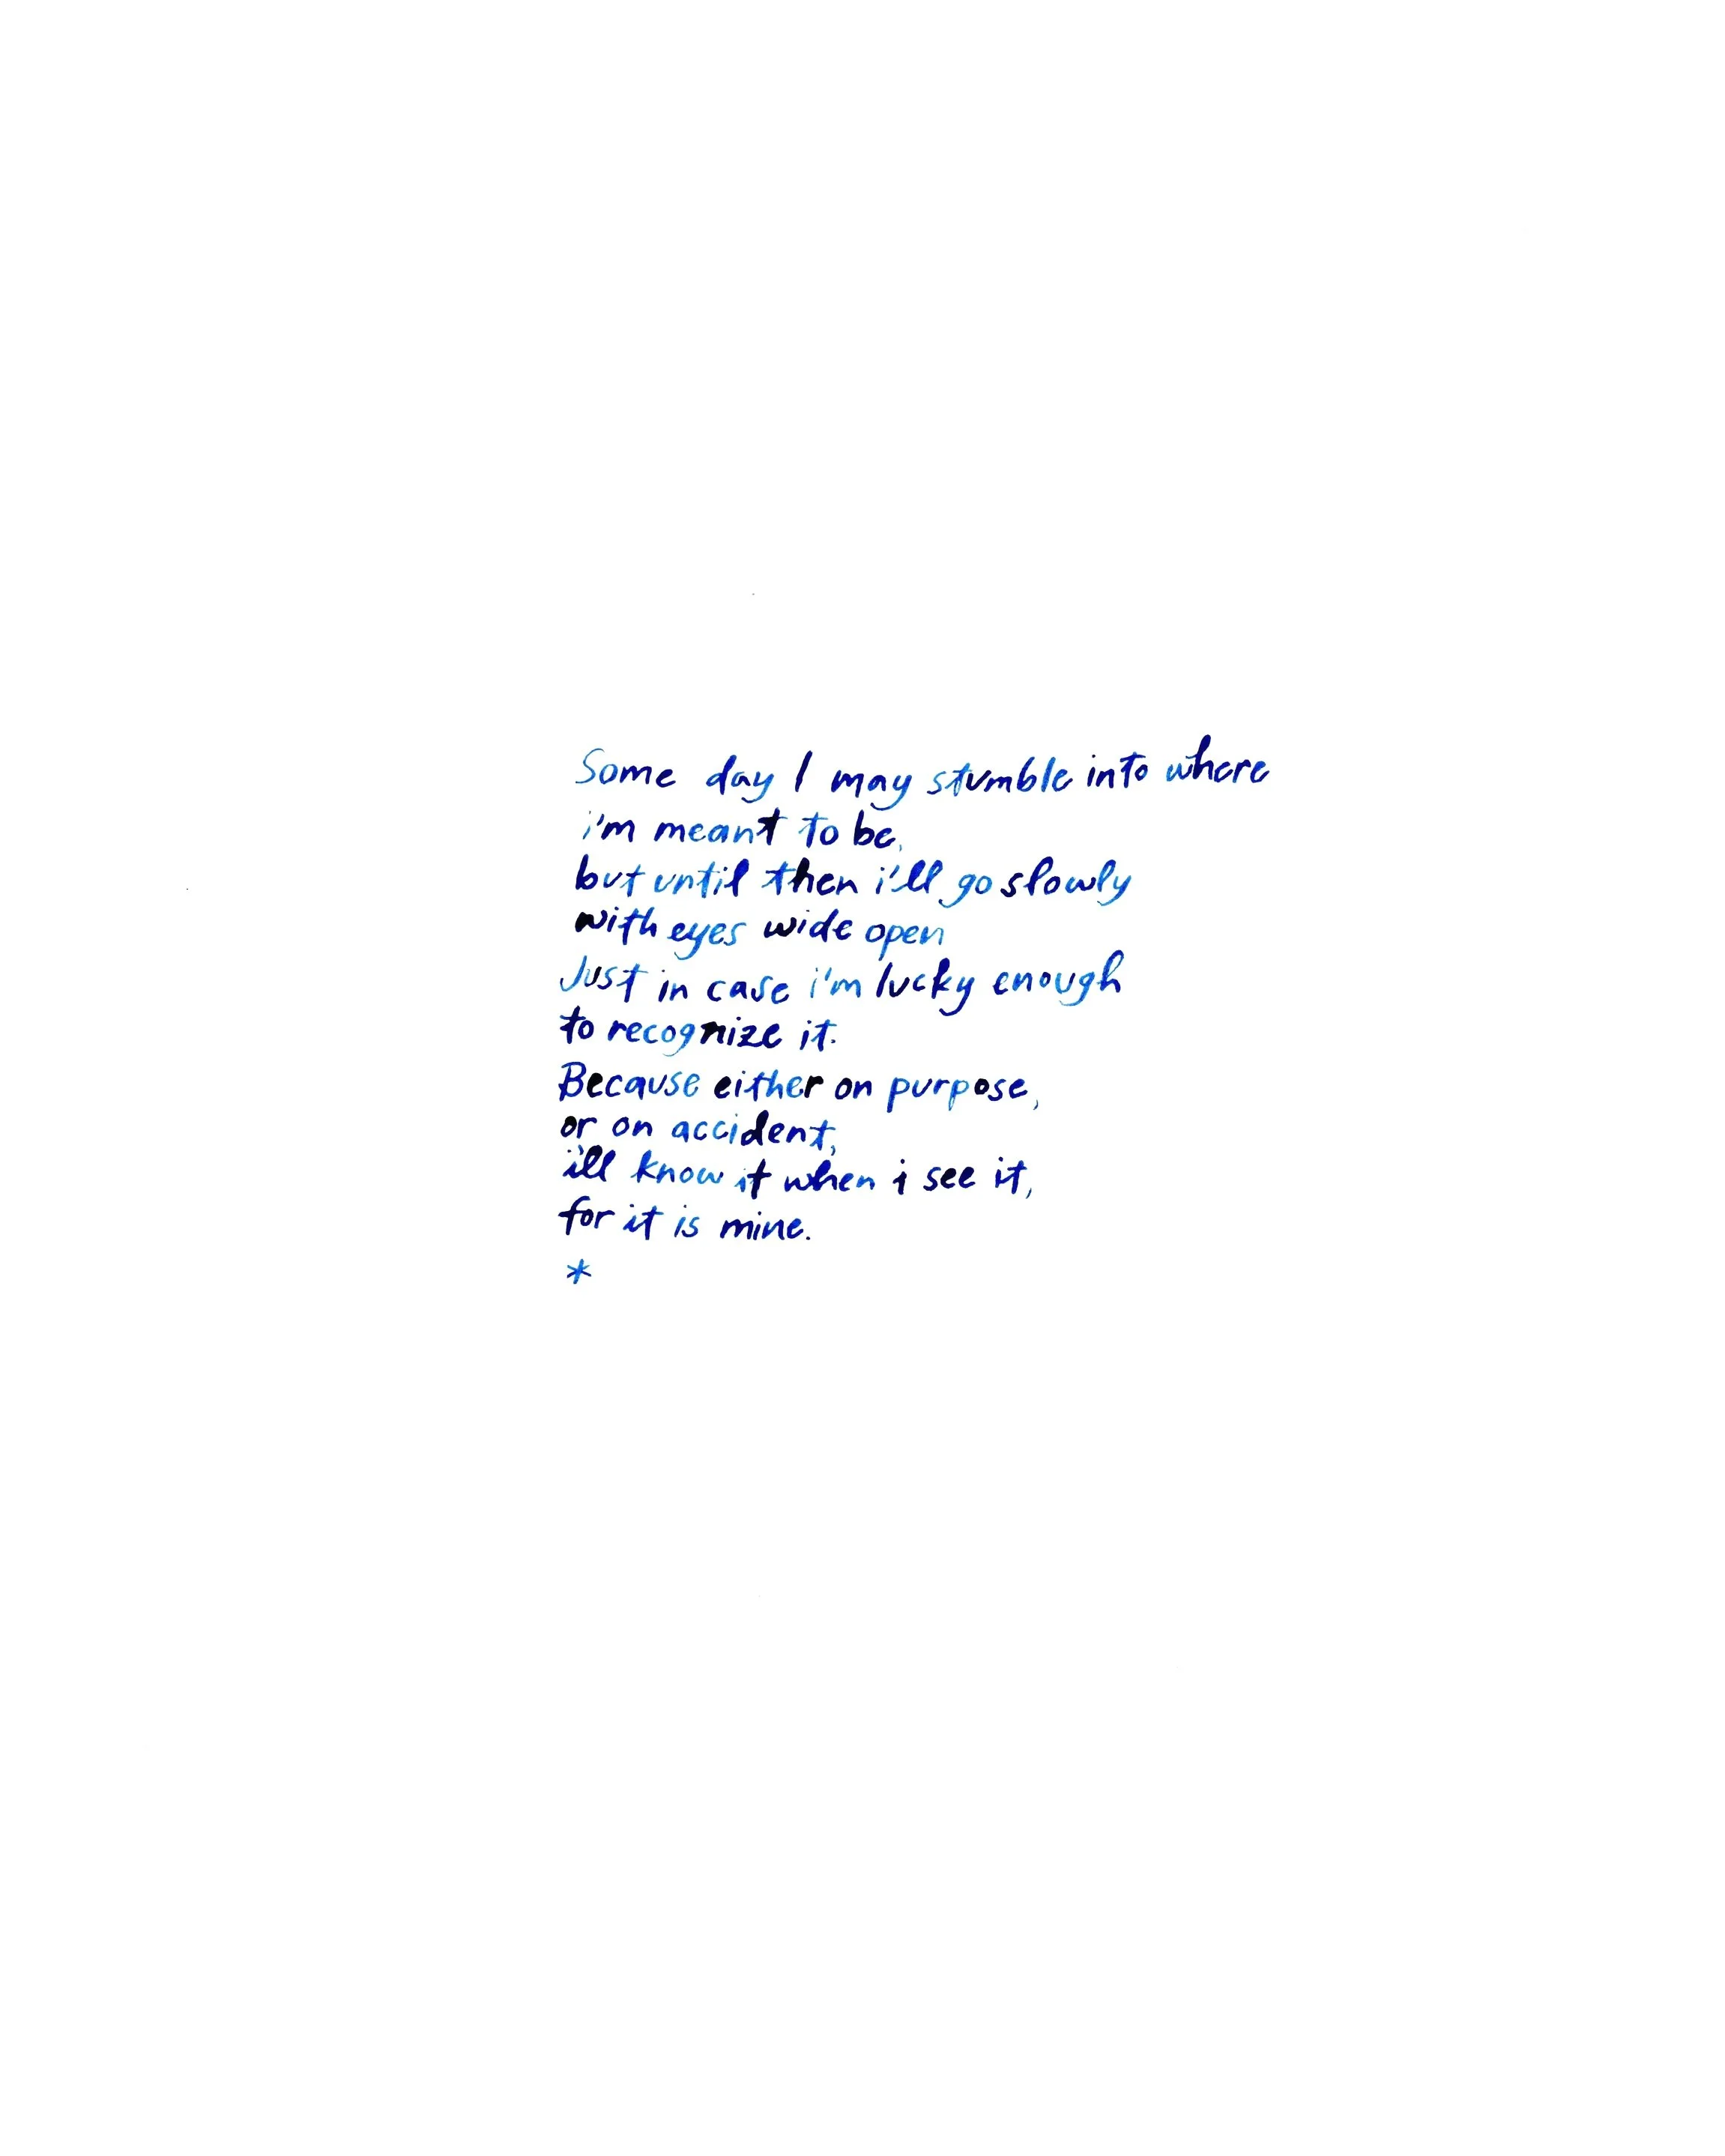 Some day I may stumble into where
i'm meant to be,
but until then i'll go slowly
with eyes wide open
Just in case i'm lucky enough
to recognize it.
Because either on purpose,
or on accident,
i'll know it when i see it,
for it is mine.
*